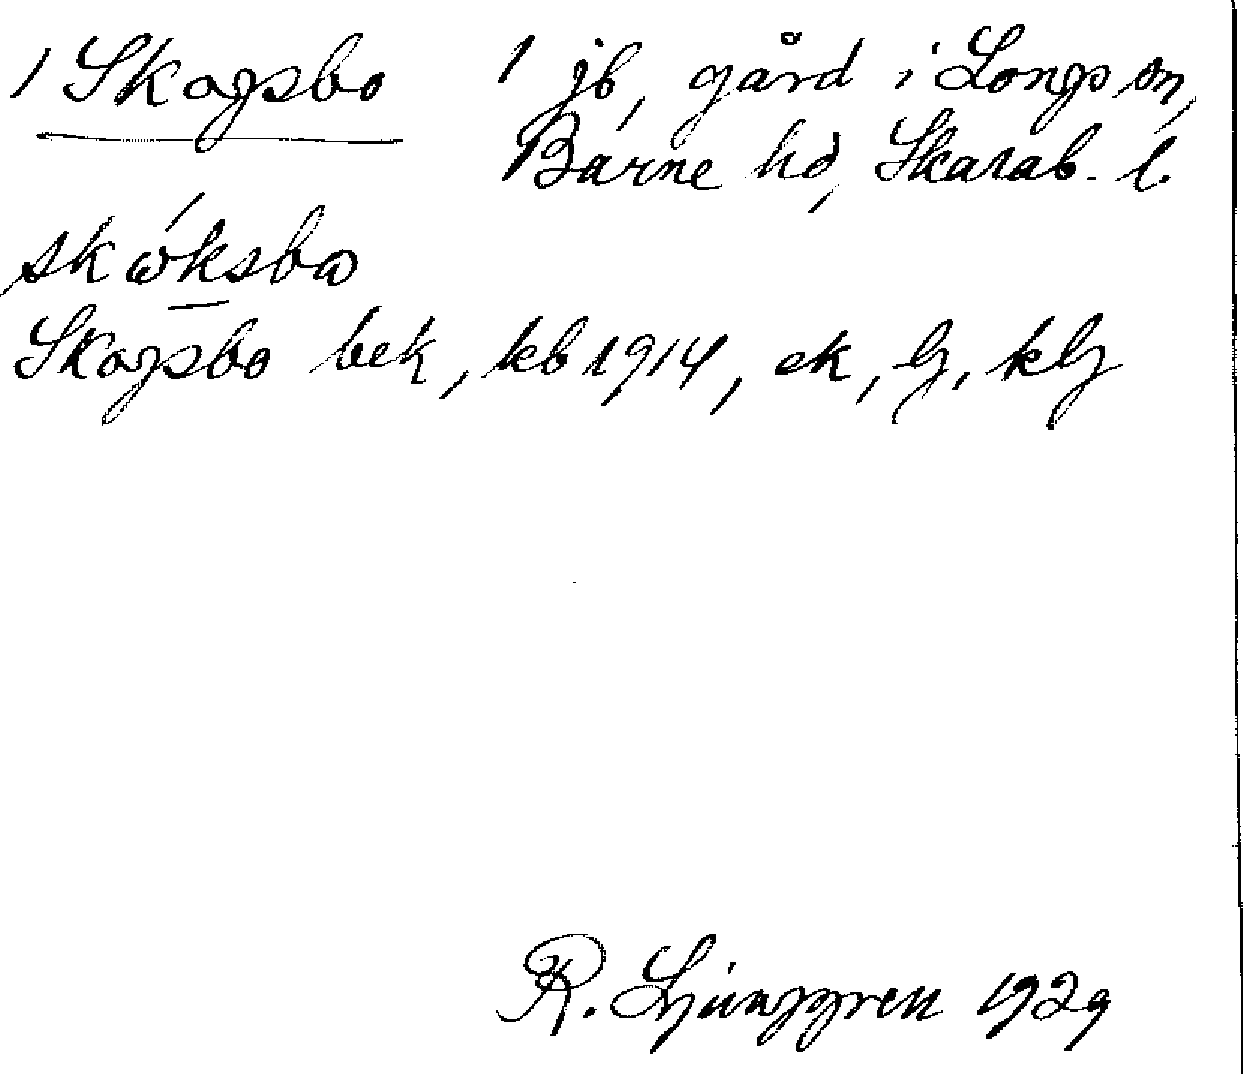 1 Skogsbo 1 jb, gård i Longs sn,
Barne hd, Skarab. l.
skώksbω
Skogsbo bek, kb 1914, ek, lj, klj
R. Ljunggren 1929